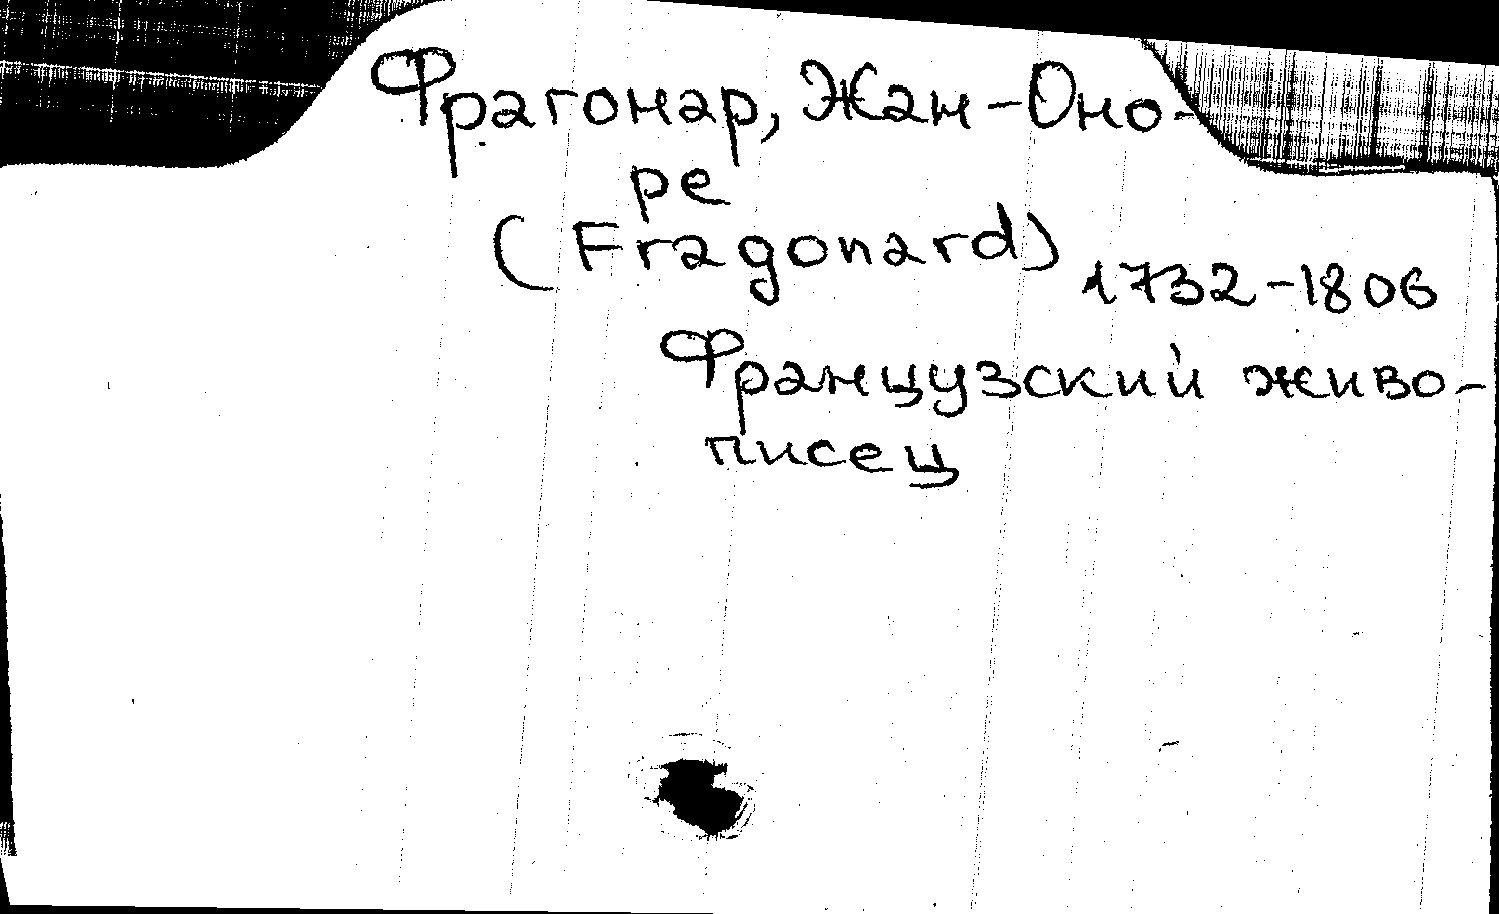 Фрагонар, Жан-Оно-
ре
(Fragonard) 1732-1806
Французский живо-
писец